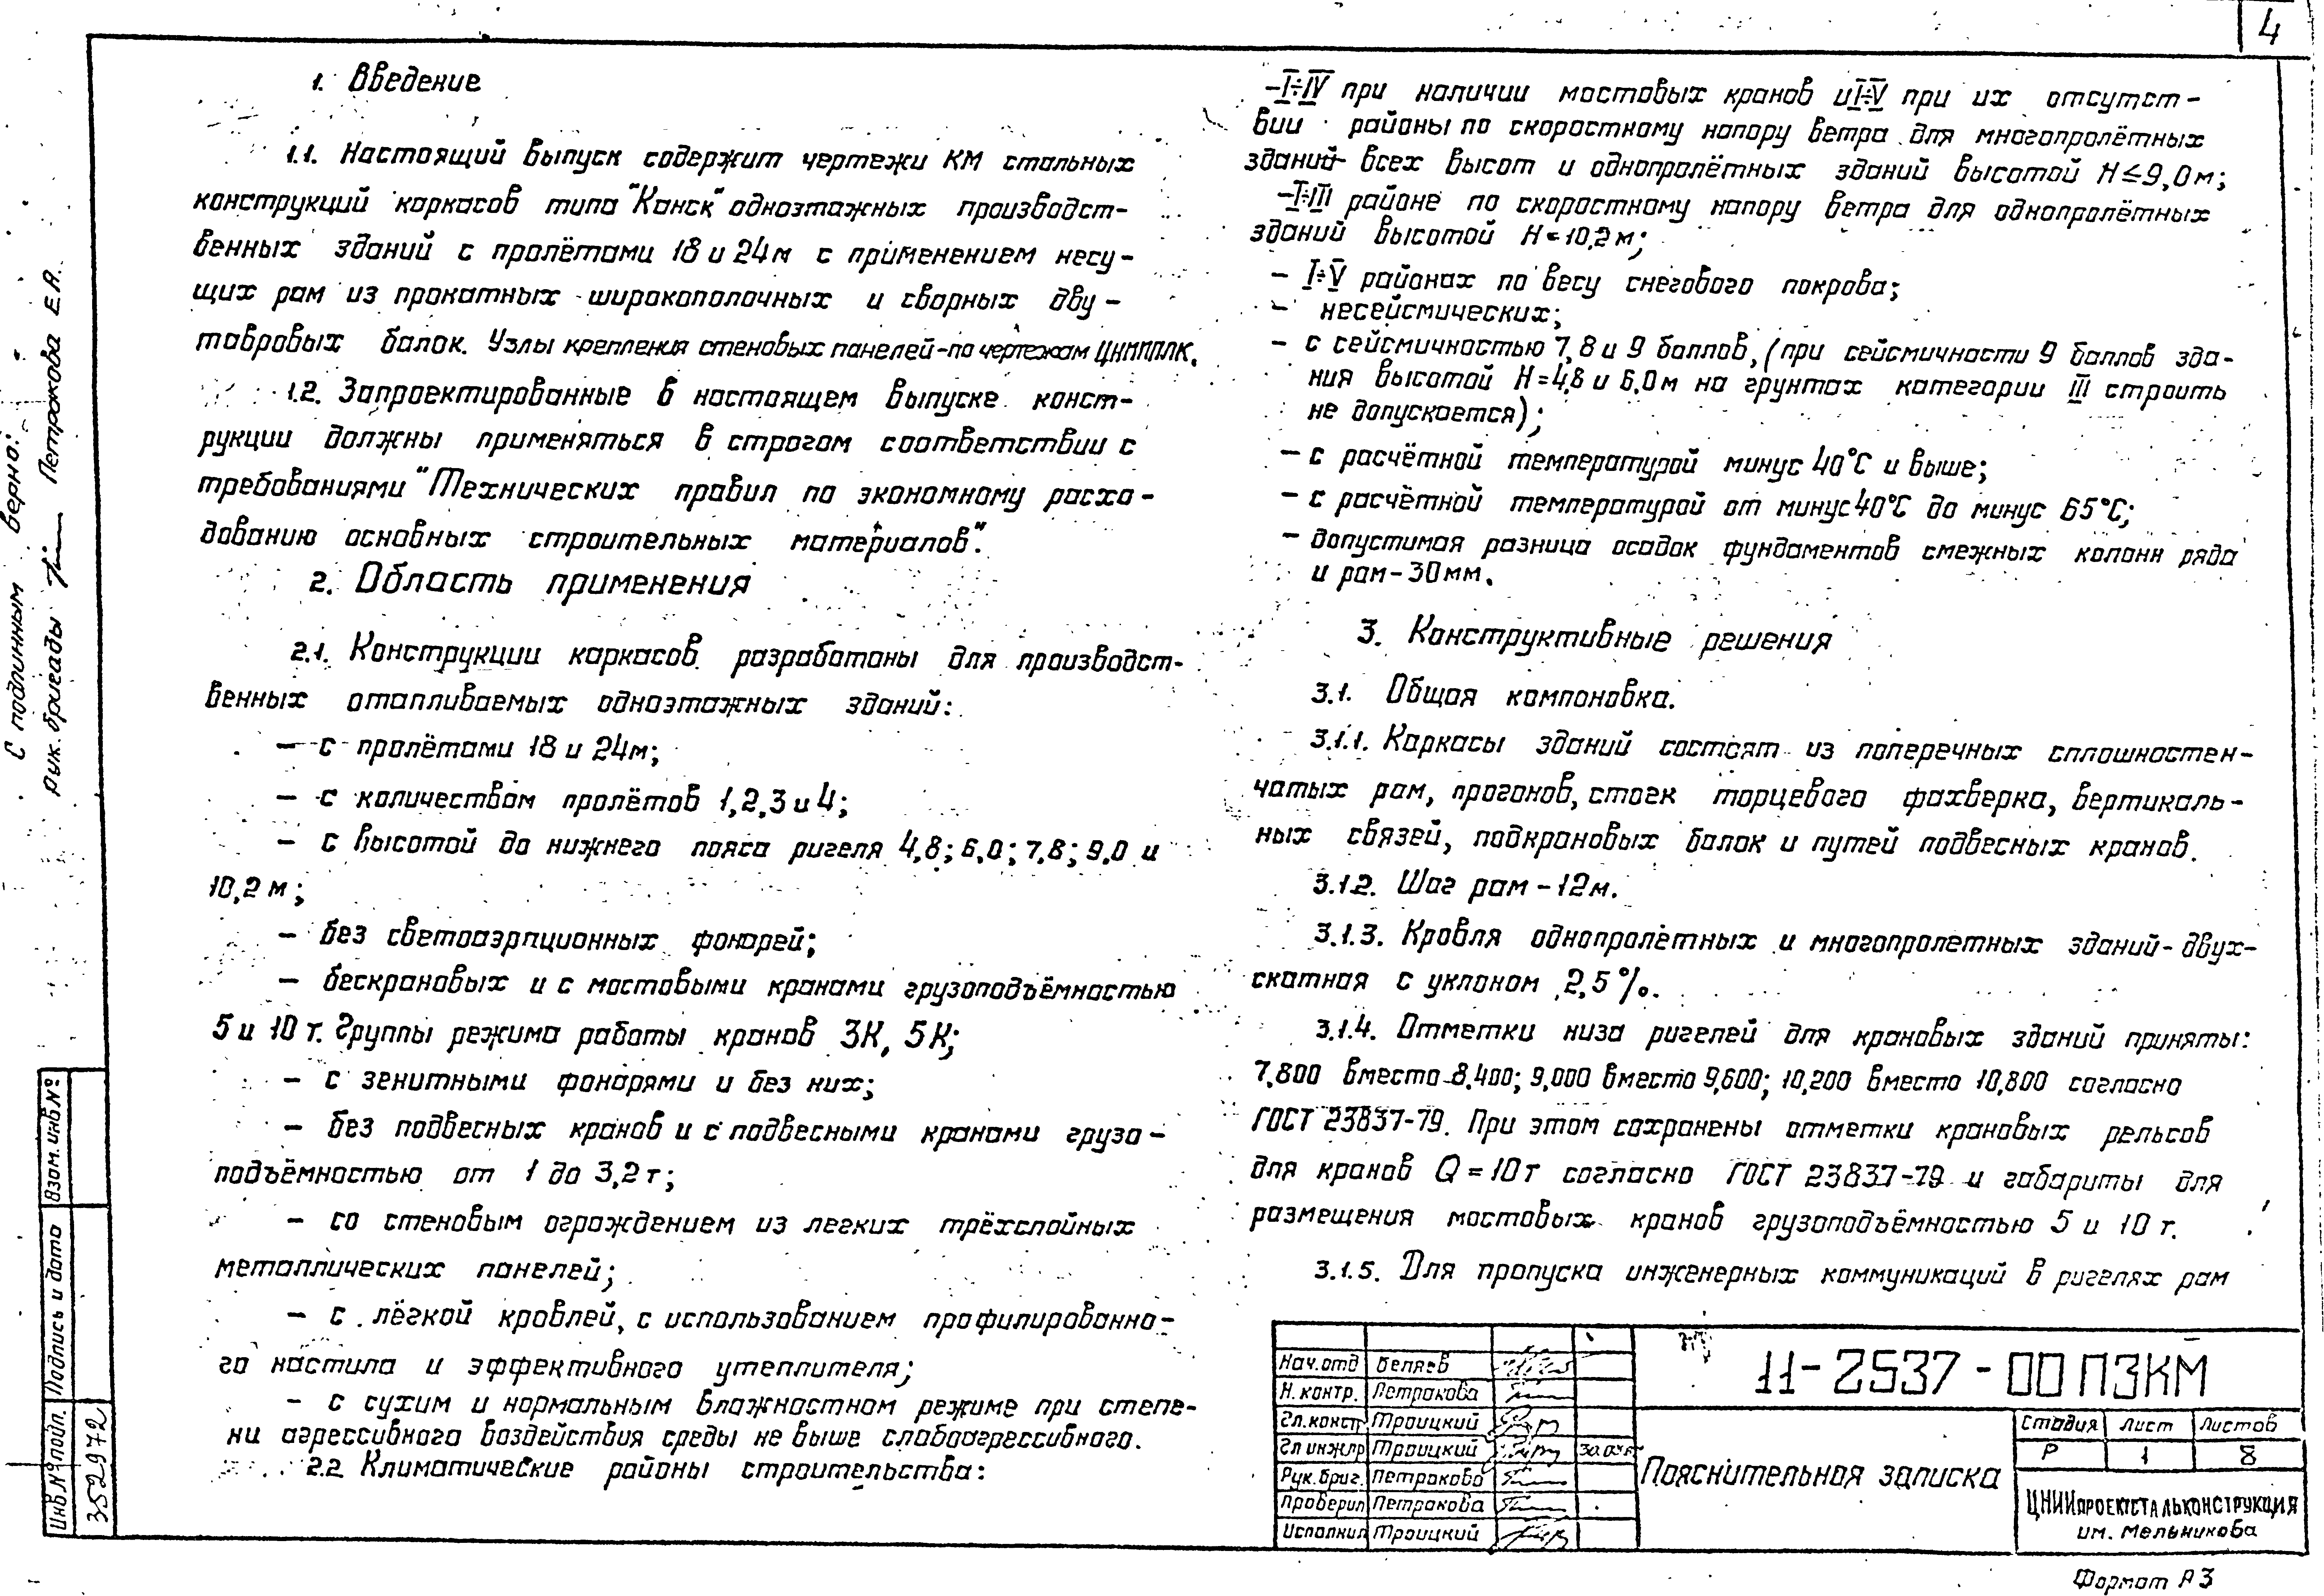 4
1. Введение
1.1. Настоящий выпуск содержит чертежи КМ стальных
конструкций каркасов типа "Канск" одноэтажных производст-
венных зданий с пролётами 18 и 24м с применением несу-
щих рам из прокатных широкополочных и сварных дву-
тавровых балок. Узлы крепления стеновых панелей-по чертежам
1.2. Запроектированные в настоящем выпуске конст-
рукции должны применяться в строгом соответствии с
требованиями "Технических правил по экономному расхо-
дованию основных строительных материалов".
2. Область применения
2.1. Конструкции каркасов разработаны для производст-
венных отапливаемых одноэтажных зданий:
- с пролётами 18 и 24м;
- с количеством пролётов 1,2,3 и 4;
- с высотой до нижнего пояса ригеля 4,8; 6,0; 7,8; 9,0 и
10,2 м;
- без светоаэрационных фонарей;
- бескрановых и с мостовыми кранами грузоподъёмностью
5 и 10 т. Группы режима работы кранов 3К, 5К;
- с зенитными фонарями и без них;
- без подвесных кранов и с подвесными кранами грузо-
подъёмностью от 1 до 3,2 т;
- со стеновым ограждением из легких трёхслойных
металлических панелей;
- с лёгкой кровлей, с использованием профилированно-
го настила и эффективного утеплителя;
- с сухим и нормальным влажностном режиме при степе-
ни агрессивного воздействия среды не выше слабоагрессивного.
2.2 Климатические районы строительства:
- I÷IV при наличии мостовых кранов и I÷V при их отсутст-
вии районы по скоростному напору ветра для многопролётных
зданий всех высот и однопролётных зданий высотой H≤9,0м;
- I÷III районе по скоростному напору ветра для однопролётных
зданий высотой H=10,2м;
- I÷V районах по весу снегового покрова;
- несейсмических;
- с сейсмичностью 7,8 и 9 баллов, (при сейсмичности 9 баллов зда-
ния высотой H=4,8 и 6,0м на грунтах категории III строить
не допускается);
- с расчётной температурой минус 40°С и выше;
- с расчётной температурой от минус 40°С до минус 65°С;
- допустимая разница осадок фундаментов смежных колонн ряда
и рам-30мм.
3. Конструктивные решения
3.1. Общая компоновка.
3.1.1. Каркасы зданий состоят из поперечных сплошностен-
чатых рам, прогонов, стоек торцевого фахверка, вертикаль-
ных связей, подкрановых балок и путей подвесных кранов.
3.1.2. Шаг рам - 12м.
3.1.3. Кровля однопролётных и многопролетных зданий-двух-
скатная с уклоном 2,5%.
3.1.4. Отметки низа ригелей для крановых зданий приняты:
7,800 вместо 8,400; 9,000 вместо 9,600; 10,200 вместо 10,800 согласно
ГОСТ 23837-79. При этом сохранены отметки крановых рельсов
для кранов Q=10т согласно ГОСТ 23837-79 и габариты для
размещения мостовых кранов грузоподъёмностью 5 и 10 т.
3.1.5. Для пропуска инженерных коммуникаций в ригелях рам
С подлинным верно:
рук. бригады Петракова Е.А.
Взам. инв №
Подпись и дата
Инв. № подл.
352972
Нач. отд Беляев
Н. контр. Петракова
Гл. констр Троицкий
Гл инж.пр Троицкий
Рук. бриг. Петракова
Проверил Петракова
Исполнил Троицкий
11-2537-00 ПЗКМ
Пояснительная записка
Стадия Лист Листов
Р 1 8
ЦНИИпроектстальконструкция
им. Мельникова
Формат А3